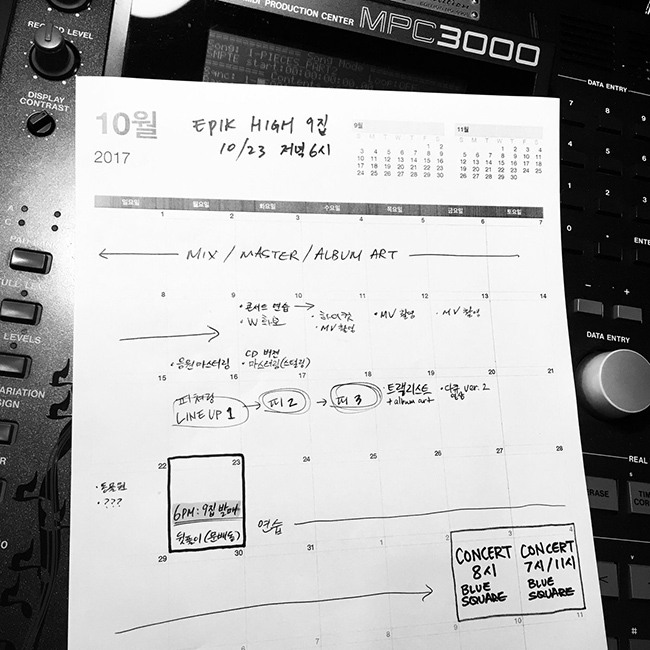 MIDI PRODUCTION CENTER MPC3000
RECORD LEVEL
DISPLAY
CONTRAST
LEVELS
DATA ENTRY
7 8 9
4 5
1 2
0 ENTER
DATA ENTRY
REAL
10월
2017
EPIK HIGH 9집
10/23 저녁 6시
9월
S M T W T F S
1 2
3 4 5 6 7 8 9
10 11 12 13 14 15 16
17 18 19 20 21 22 23
24 25 26 27 28 29 30
11월
S M T W T F S
1 2 3 4
5 6 7 8 9 10 11
12 13 14 15 16 17 18
19 20 21 22 23 24 25
26 27 28 29 30
일요일 월요일 화요일 수요일 목요일 금요일 토요일
1 2 3 4 5 6 7
← MIX / MASTER / ALBUM ART →
8 9 10 11 12 13 14
· 콘서트 연습 →
· W 화보
· 하이컷
· MV 촬영
· MV 촬영
· MV 촬영
· 음원 마스터링
CD 버전
· 마스터링(스털링)
15 16 17 18 19 20 21
피처링
LINE UP 1 → 피 2 → 피 3
· 트랙리스트
+ album art
ver. 2
22 23 24 25 26 27 28
· ???
6PM: 9집 발매
뒷풀이
연습
29 30 31 1 2 3 4
CONCERT
8시
BLUE
SQUARE
CONCERT
7시/11시
BLUE
SQUARE
10 11